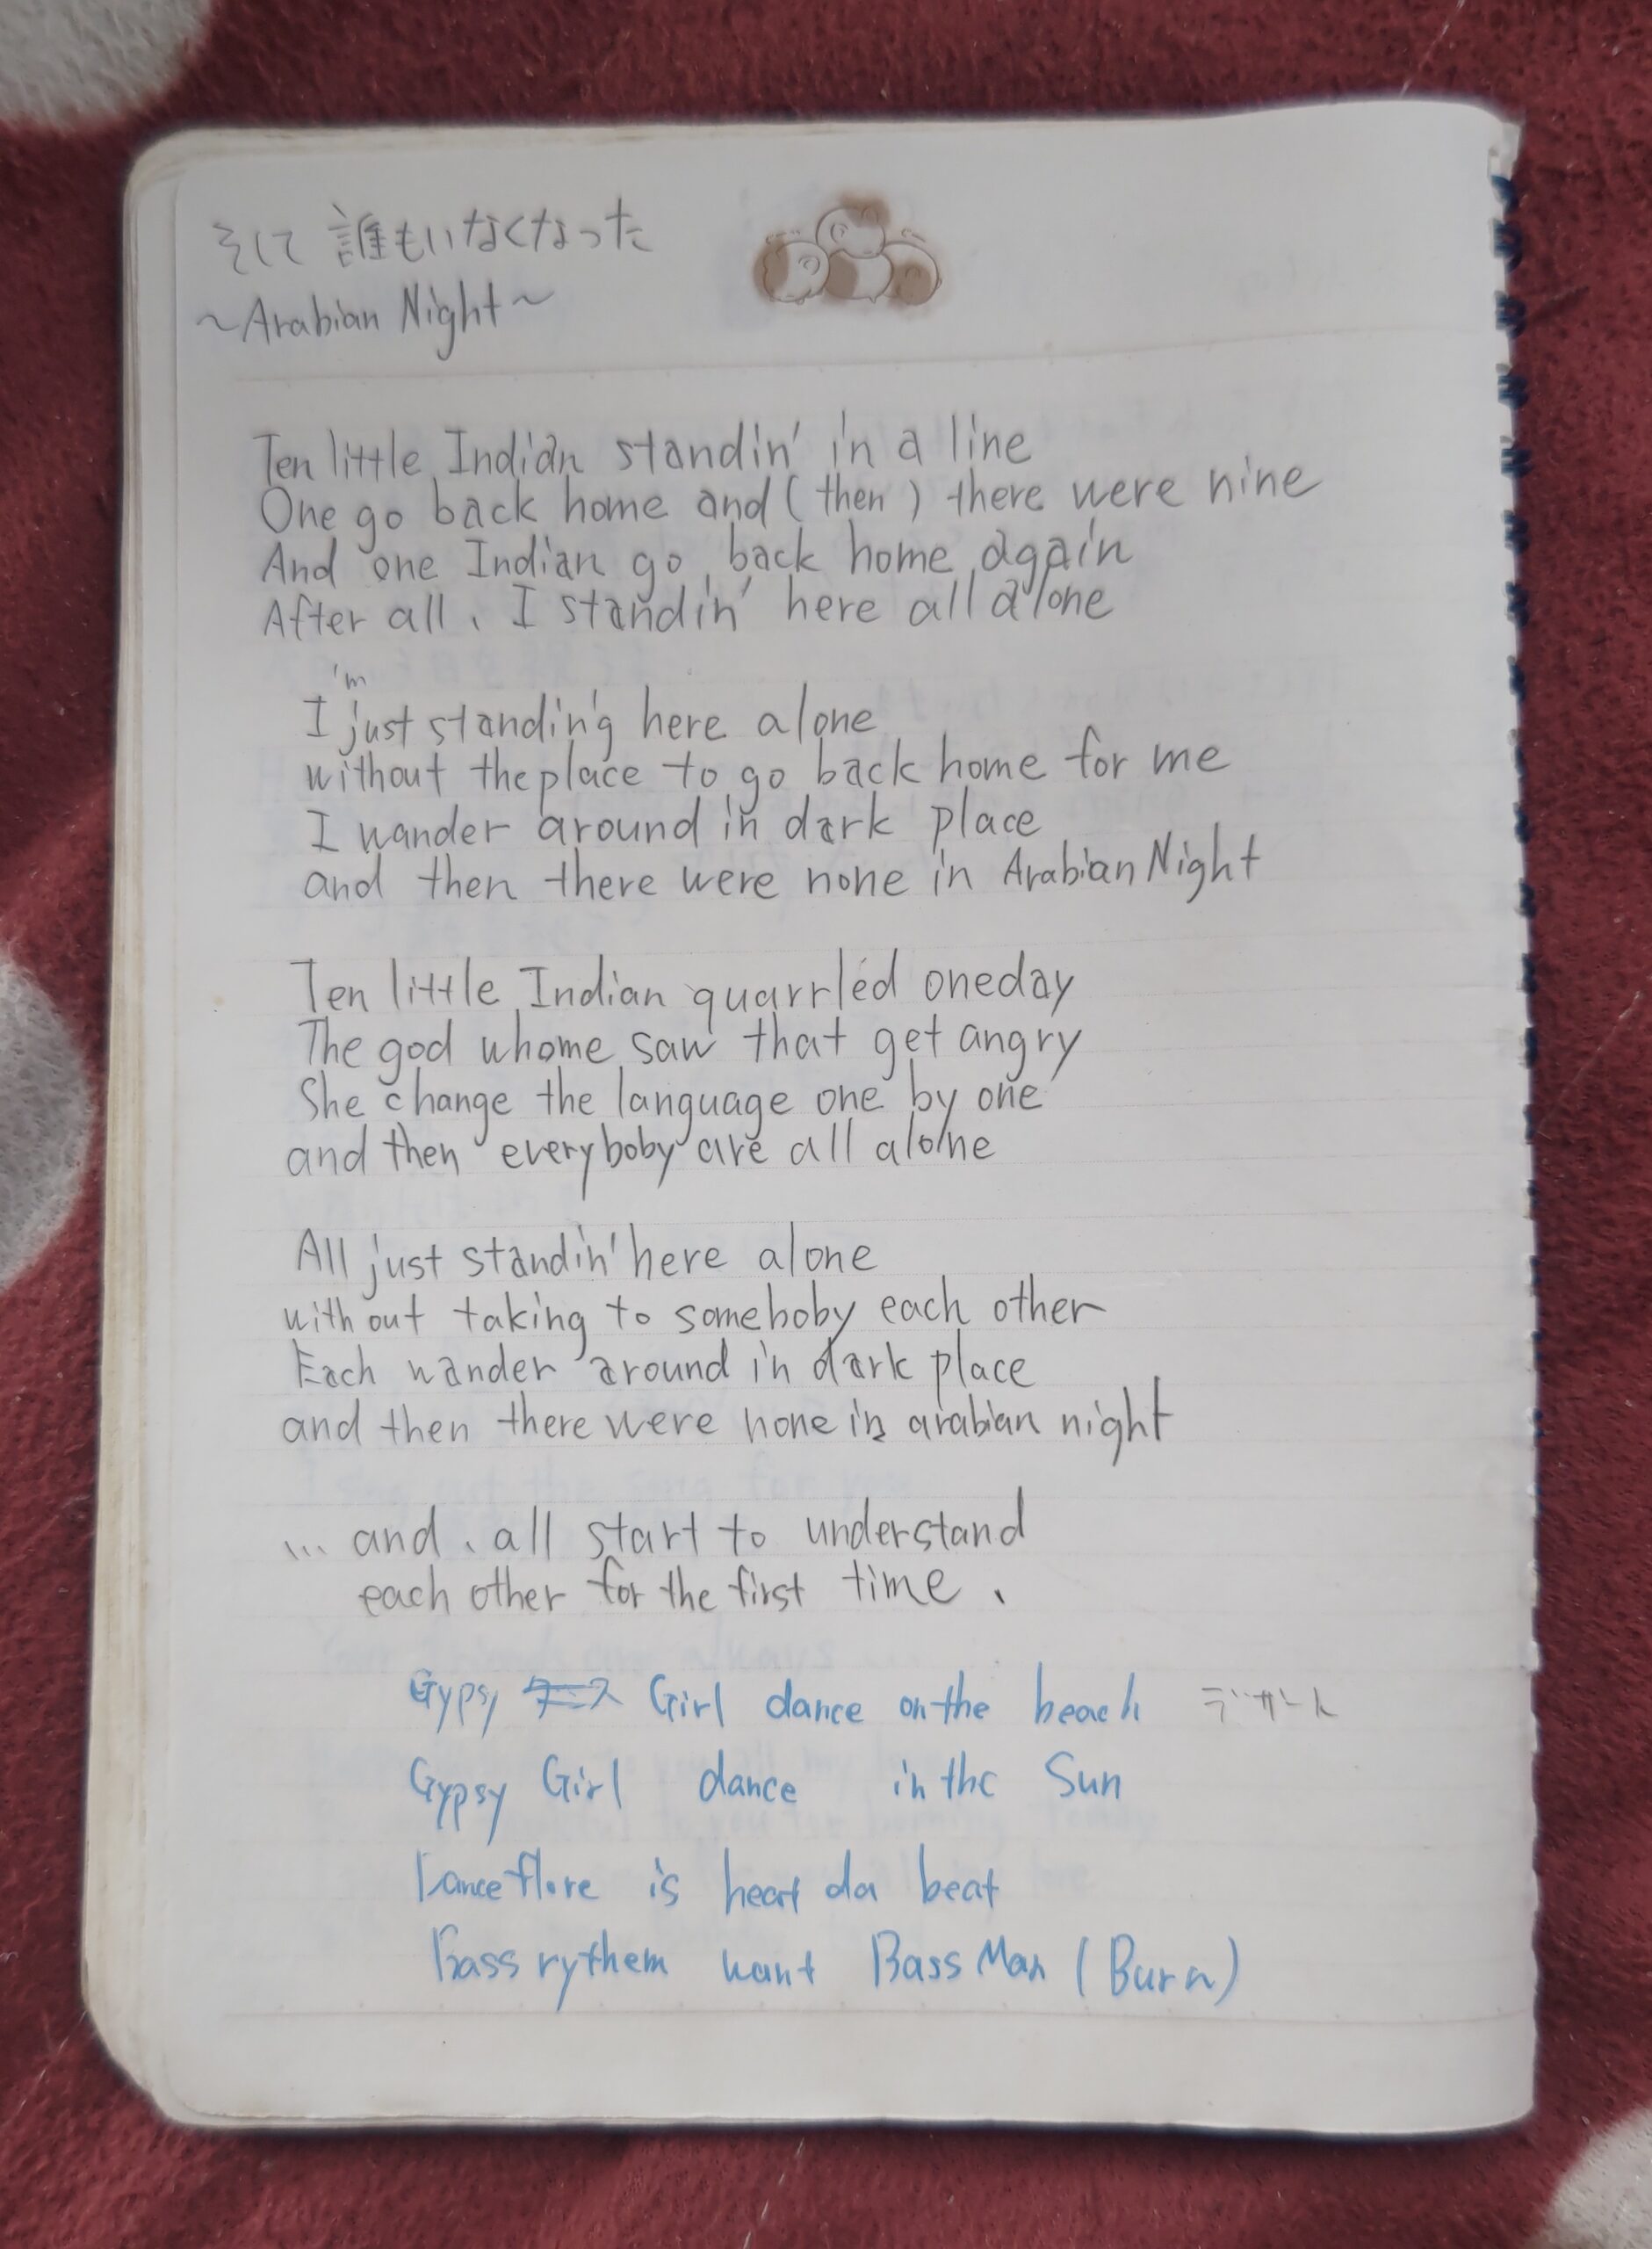 そして 誰もいなくなった
～Arabian Night～
Ten little Indian standin' in a line
One go back home and (then) there were nine
And one Indian go back home again
After all、I standin' here all alone
I'm just standing here alone
without the place to go back home for me
I wander around in dark place
and then there were none in Arabian Night
Ten little Indian quarrled oneday
The god whome saw that get angry
She change the language one by one
and then everyboby are all alone
All just standin' here alone
without taking to someboby each other
Each wander around in dark place
and then there were none in arabian night
... and、all start to understand
each other for the first time、
Gypsy Girl dance on the beach デザート
Gypsy Girl dance in the Sun
Dance flore is heart da beat
Bass rythem want Bass Man (Burn)